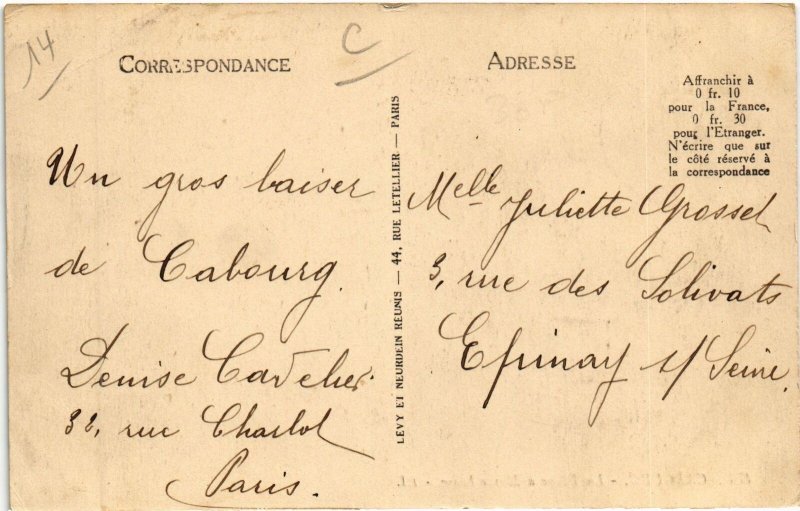 14
C
CORRESPONDANCE
Un gros baiser
de Cabourg.
Denise Cavelier
32, rue Charlot
Paris.
LEVY ET NEURDEIN RÉUNIS — 44, RUE LETELLIER — PARIS
ADRESSE
Affranchir à
0 fr. 10
pour la France,
0 fr. 30
pour l'Etranger.
N'écrire que sur
le côté réservé à
la correspondance
Melle Juliette Grosset
3, rue des Solivats
Epinay s/ Seine.